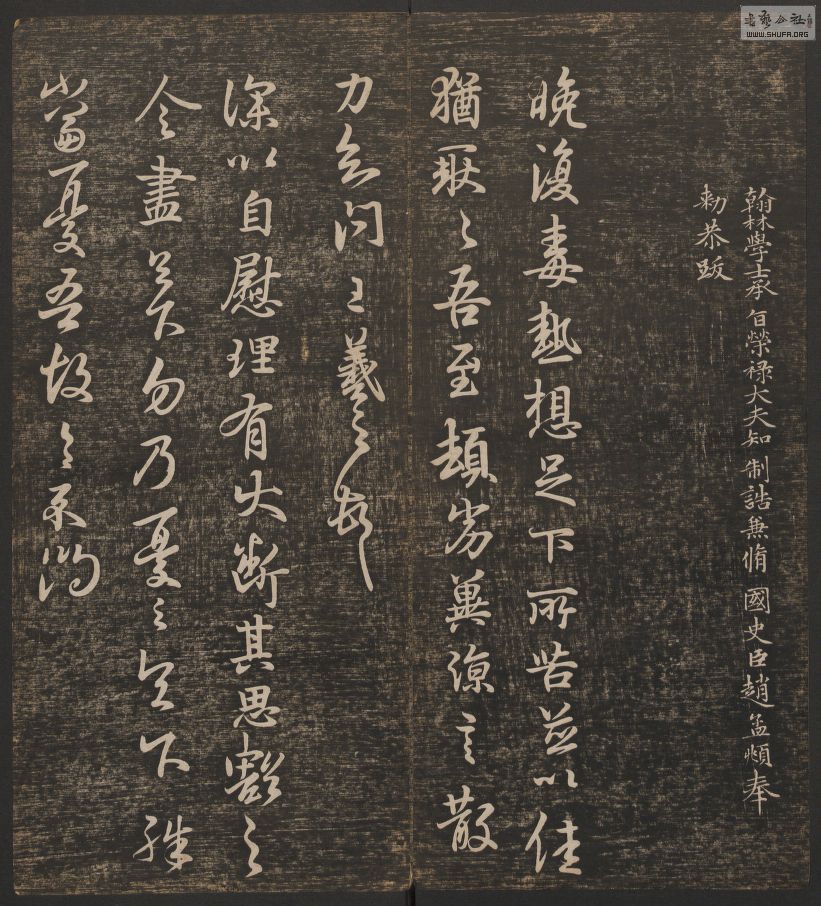 書藝公社
WWW.SHUFA.ORG
翰林學士承旨榮祿大夫知制誥兼脩國史臣趙孟頫奉
勑恭跋
晚復毒熱想足下所苦並以佳
猶耿々吾至頓劣冀涼言散
力知問王羲之報
深以自慰理有大斷其思豁之
令盡足下勿乃憂之足下殊
當憂吾故具示問